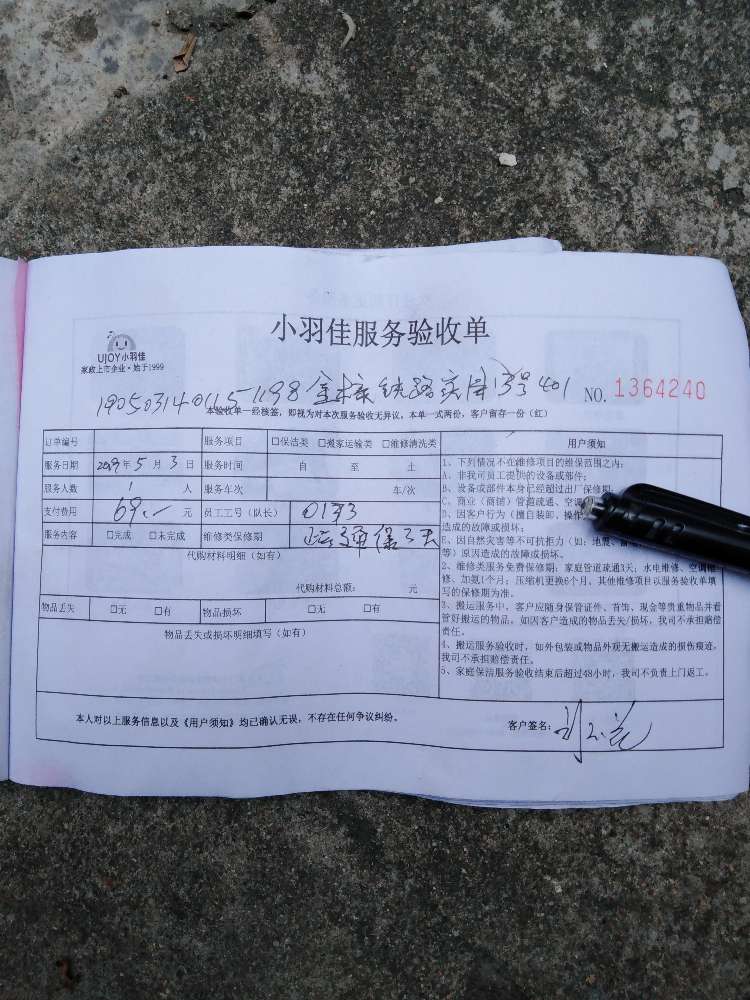 小羽佳服务验收单
UJOY小羽佳
家政上市企业·始于1999
1905031401151198 金 铁路 13号401 NO. 1364240
本验收单一经核签，即视为对本次服务验收无异议。本单一式两份，客户留存一份（红）
订单编号 服务项目 □保洁类 □搬家运输类 □维修清洗类 用户须知
服务日期 2019年5月3日 服务时间 自 至 止
服务人数 1 人 服务车次 车/次
支付费用 69.- 元 员工工号（队长）
服务内容 □完成 □未完成 维修类保修期 通保3天
代购材料明细（如有）
代购材料总额： 元
物品丢失 □无 □有 物品损坏 □无 □有
物品丢失或损坏明细填写（如有）
1、下列情况不在维修项目的维保范围之内：
A、非我司员工提供的设备或部件；
B、设备或部件本身已经超过出厂保修期；
C、商业（商铺）管道疏通、空调
D、因客户行为（擅自装卸、操作
造成的故障或损坏；
E、因自然灾害等不可抗拒力（如：地震、
等）原因造成的故障或损坏。
2、维修类服务免费保修期：家庭管道疏通3天；水电维修、空调维
修、加氨1个月；压缩机更换6个月，其他维修项目以服务验收单填写
的保修期为准。
3、搬运服务中，客户应随身保管证件、首饰、现金等贵重物品并看
管好搬运的物品，如因客户造成的物品丢失/损坏，我司不承担赔偿
责任。
4、搬运服务验收时，如外包装或物品外观无搬运造成的损伤痕迹，
我司不承担赔偿责任。
5、家庭保洁服务验收结束后超过48小时，我司不负责上门返工。
本人对以上服务信息以及《用户须知》均已确认无误，不存在任何争议纠纷。 客户签名：